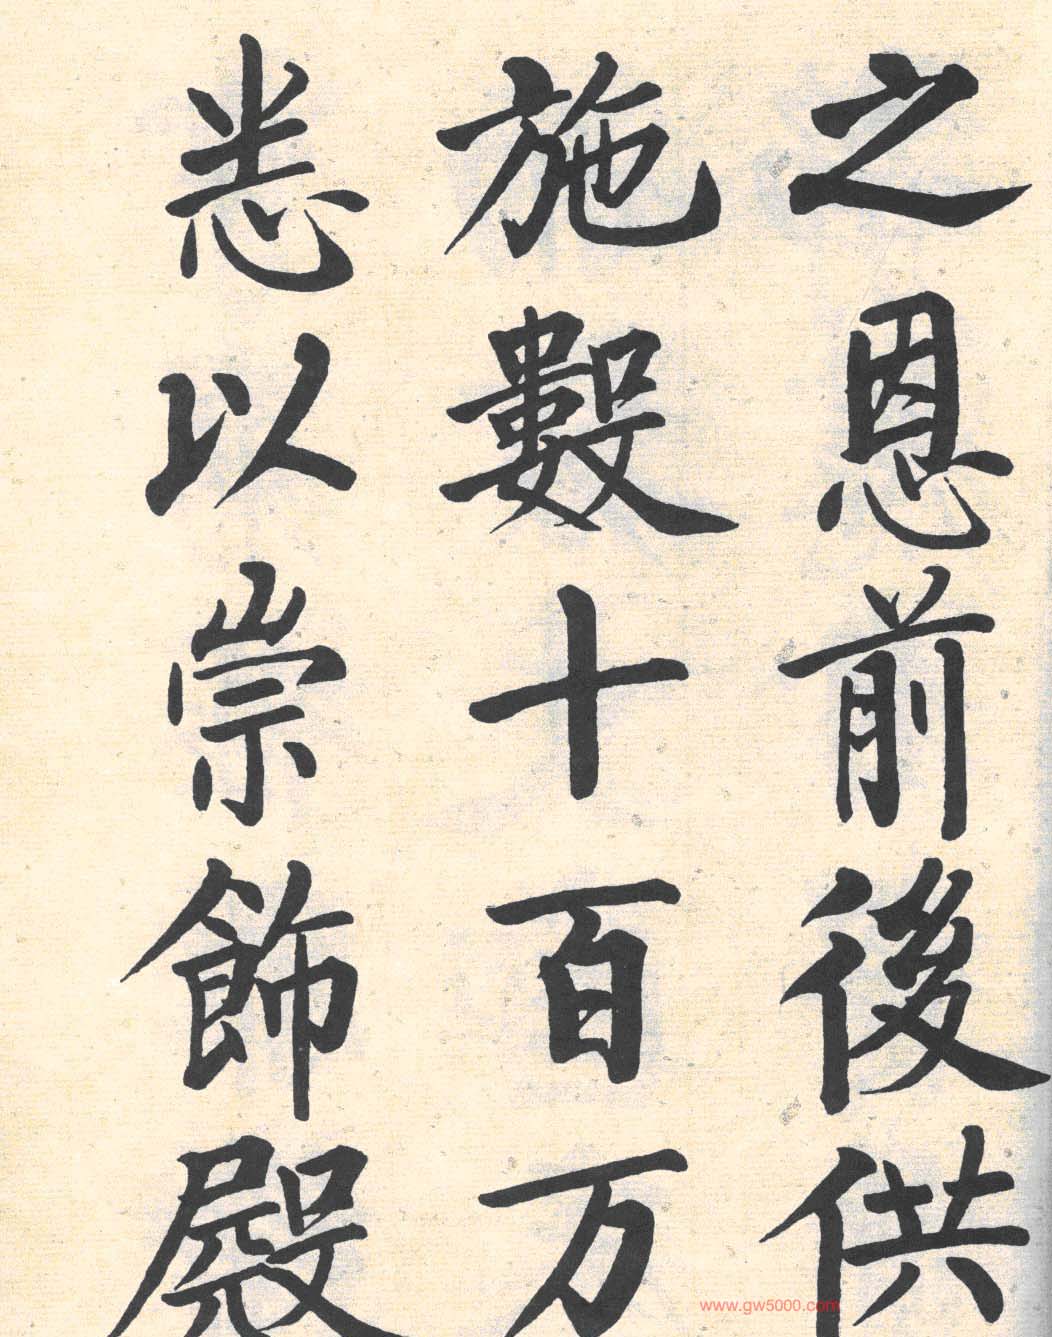 之恩前後供
施數十百万
悉以崇飾殿
www.gw5000.com